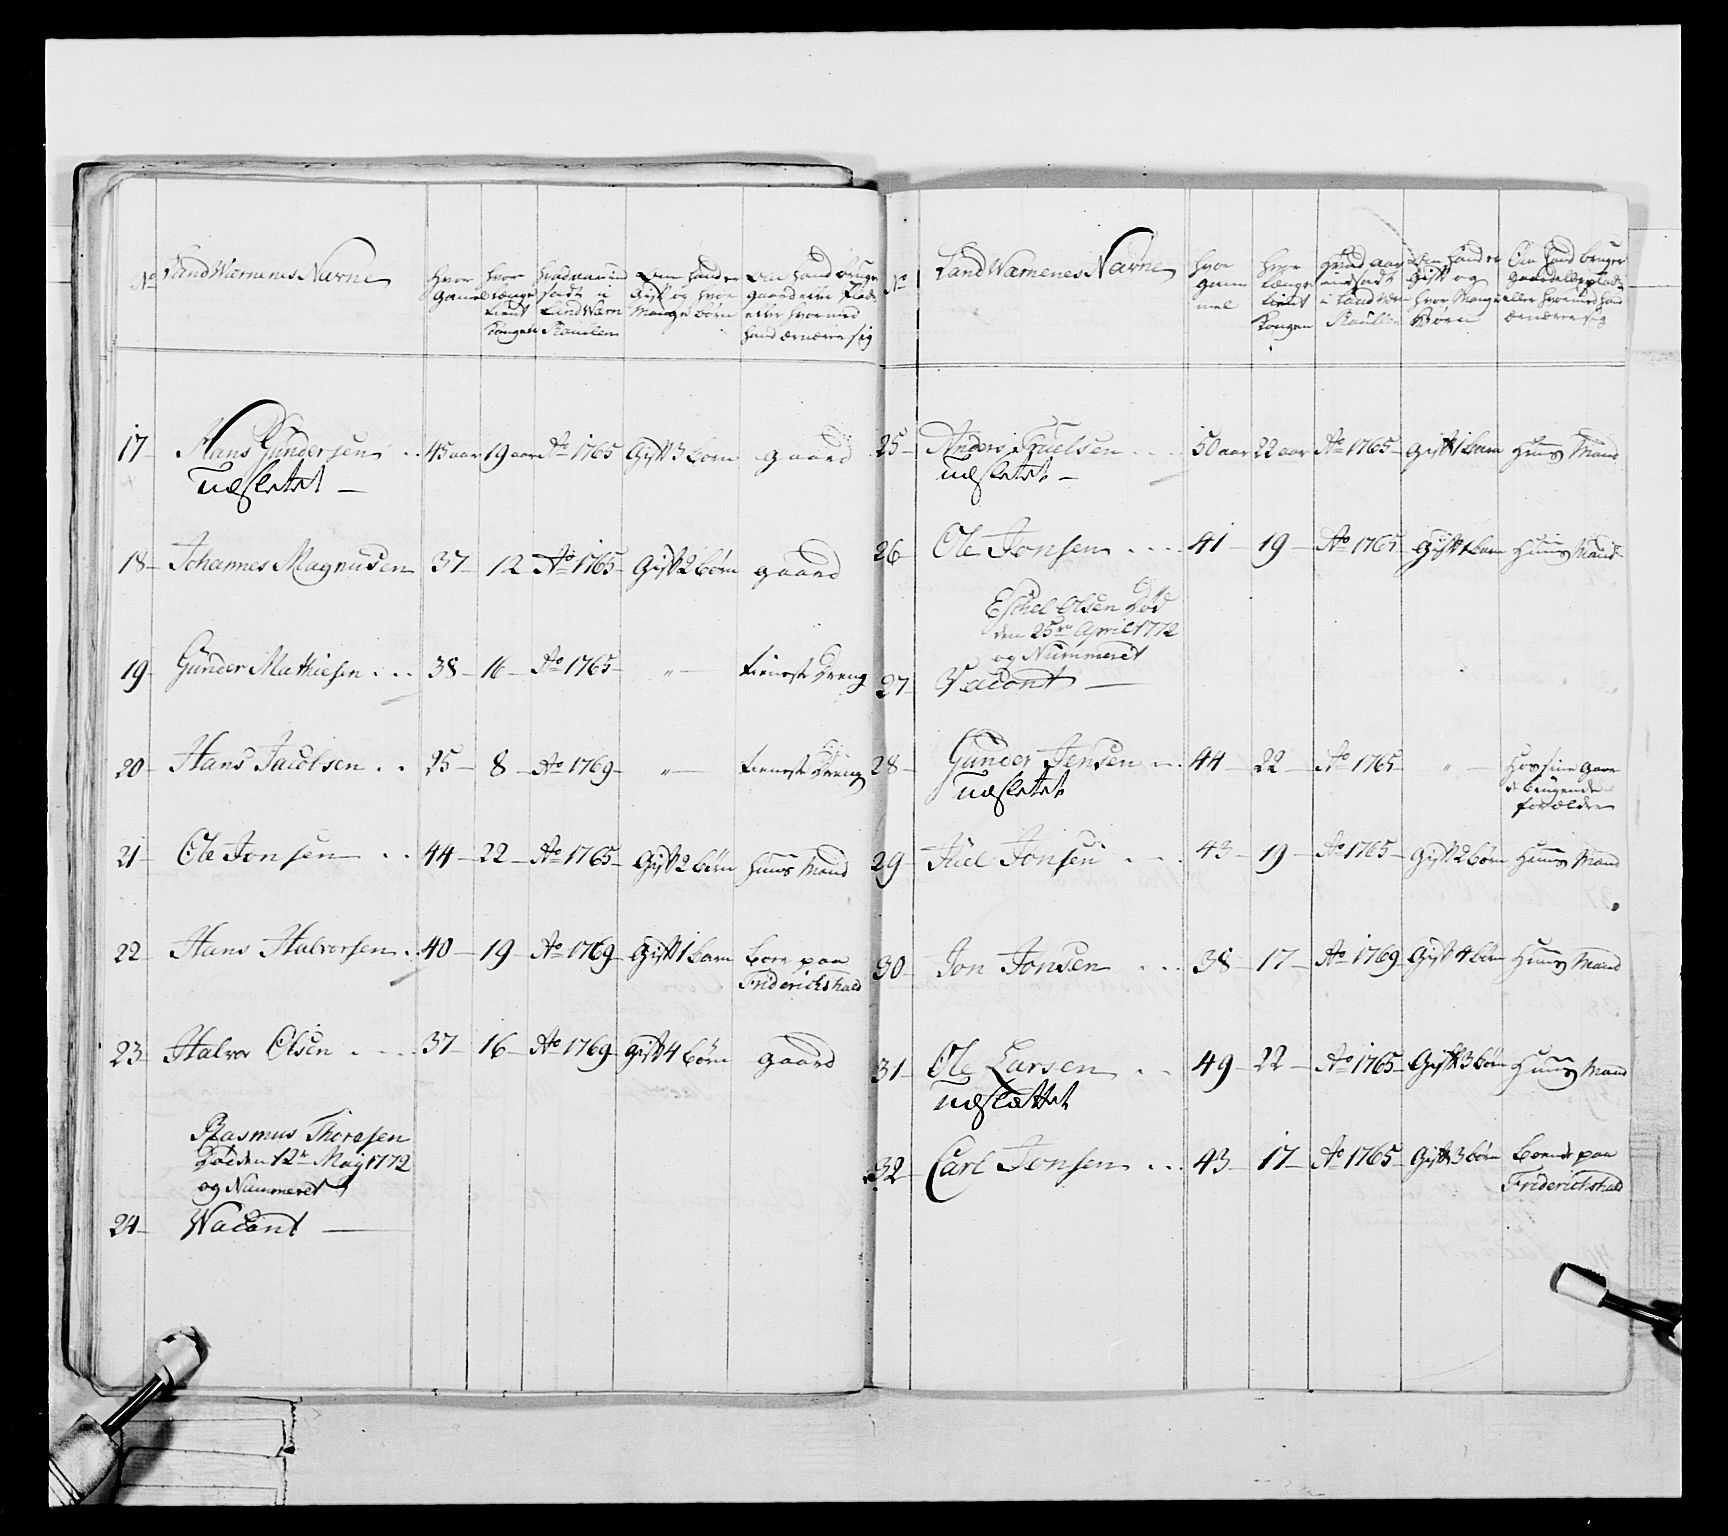 No
Land Wærnenes Navne
Hvor Gamel
hvor længe tient Kongen
hvad aar ind sadt i Land Wærn Roullen
Om hand er Gift og hvor Mange børn
Om hand bruger gaard eller Plads eller hvormed hand ærnærer sig
17 Hans Gundersen 45 aar 19 aar Ao 1765 Gift 3 børn gaard
udsletet
18 Johannes Magnusen 37 12 Ao 1765 Gift 2 børn gaard
19 Gunder Mathiesen 38 16 Ao 1765 " tieneste Dreng
20 Hans Jacobsen 25 8 Ao 1769 " tieneste Dreng
21 Ole Jonsen 44 22 Ao 1765 Gift 2 børn huus Mand
22 Hans Halvorsen 40 19 Ao 1769 Gift 1 barn boer paa
Friderichshald
23 Halvor Olsen 37 16 Ao 1769 gift 4 børn gaard
Rasmus Thoresen
Død den 12te Maij 1772
og Nummeret
24 Wacant
No
Land Wærnenes Navne
hvor gammel
hvor længe tient Kongen
hvad aar indsadt i Land Wærn Roullen
Om hand er Gift og hvor Mange Børn
Om hand bruger gaard eller plads eller hvormed hand ærnærer sig
25 Anders 50 aar 22 aar Ao 1765 gift 1 barn huus Mand
udsletet
26 Ole Jonsen 41 19 Ao 1765 gift 1 barn huus Mand
Eschel Olsen Død
den 25de April 1772
og Nummeret
27 Vacant
28 Gunder Jensen 44 22 Ao 1765 " hos sine gaar
d brugende
forældre
udsletet
29 Juel Jonsen 43 19 Ao 1765 gift 2 børn huus Mand
30 Jon Jonsen 38 17 Ao 1769 Gift 4 børn huus Mand
31 Ole Larsen 49 22 Ao 1765 Gift 3 børn huus Mand
udslættet
32 Carl Jonsen 43 17 Ao 1765 Gift 3 børn boende paa
Friderichshald